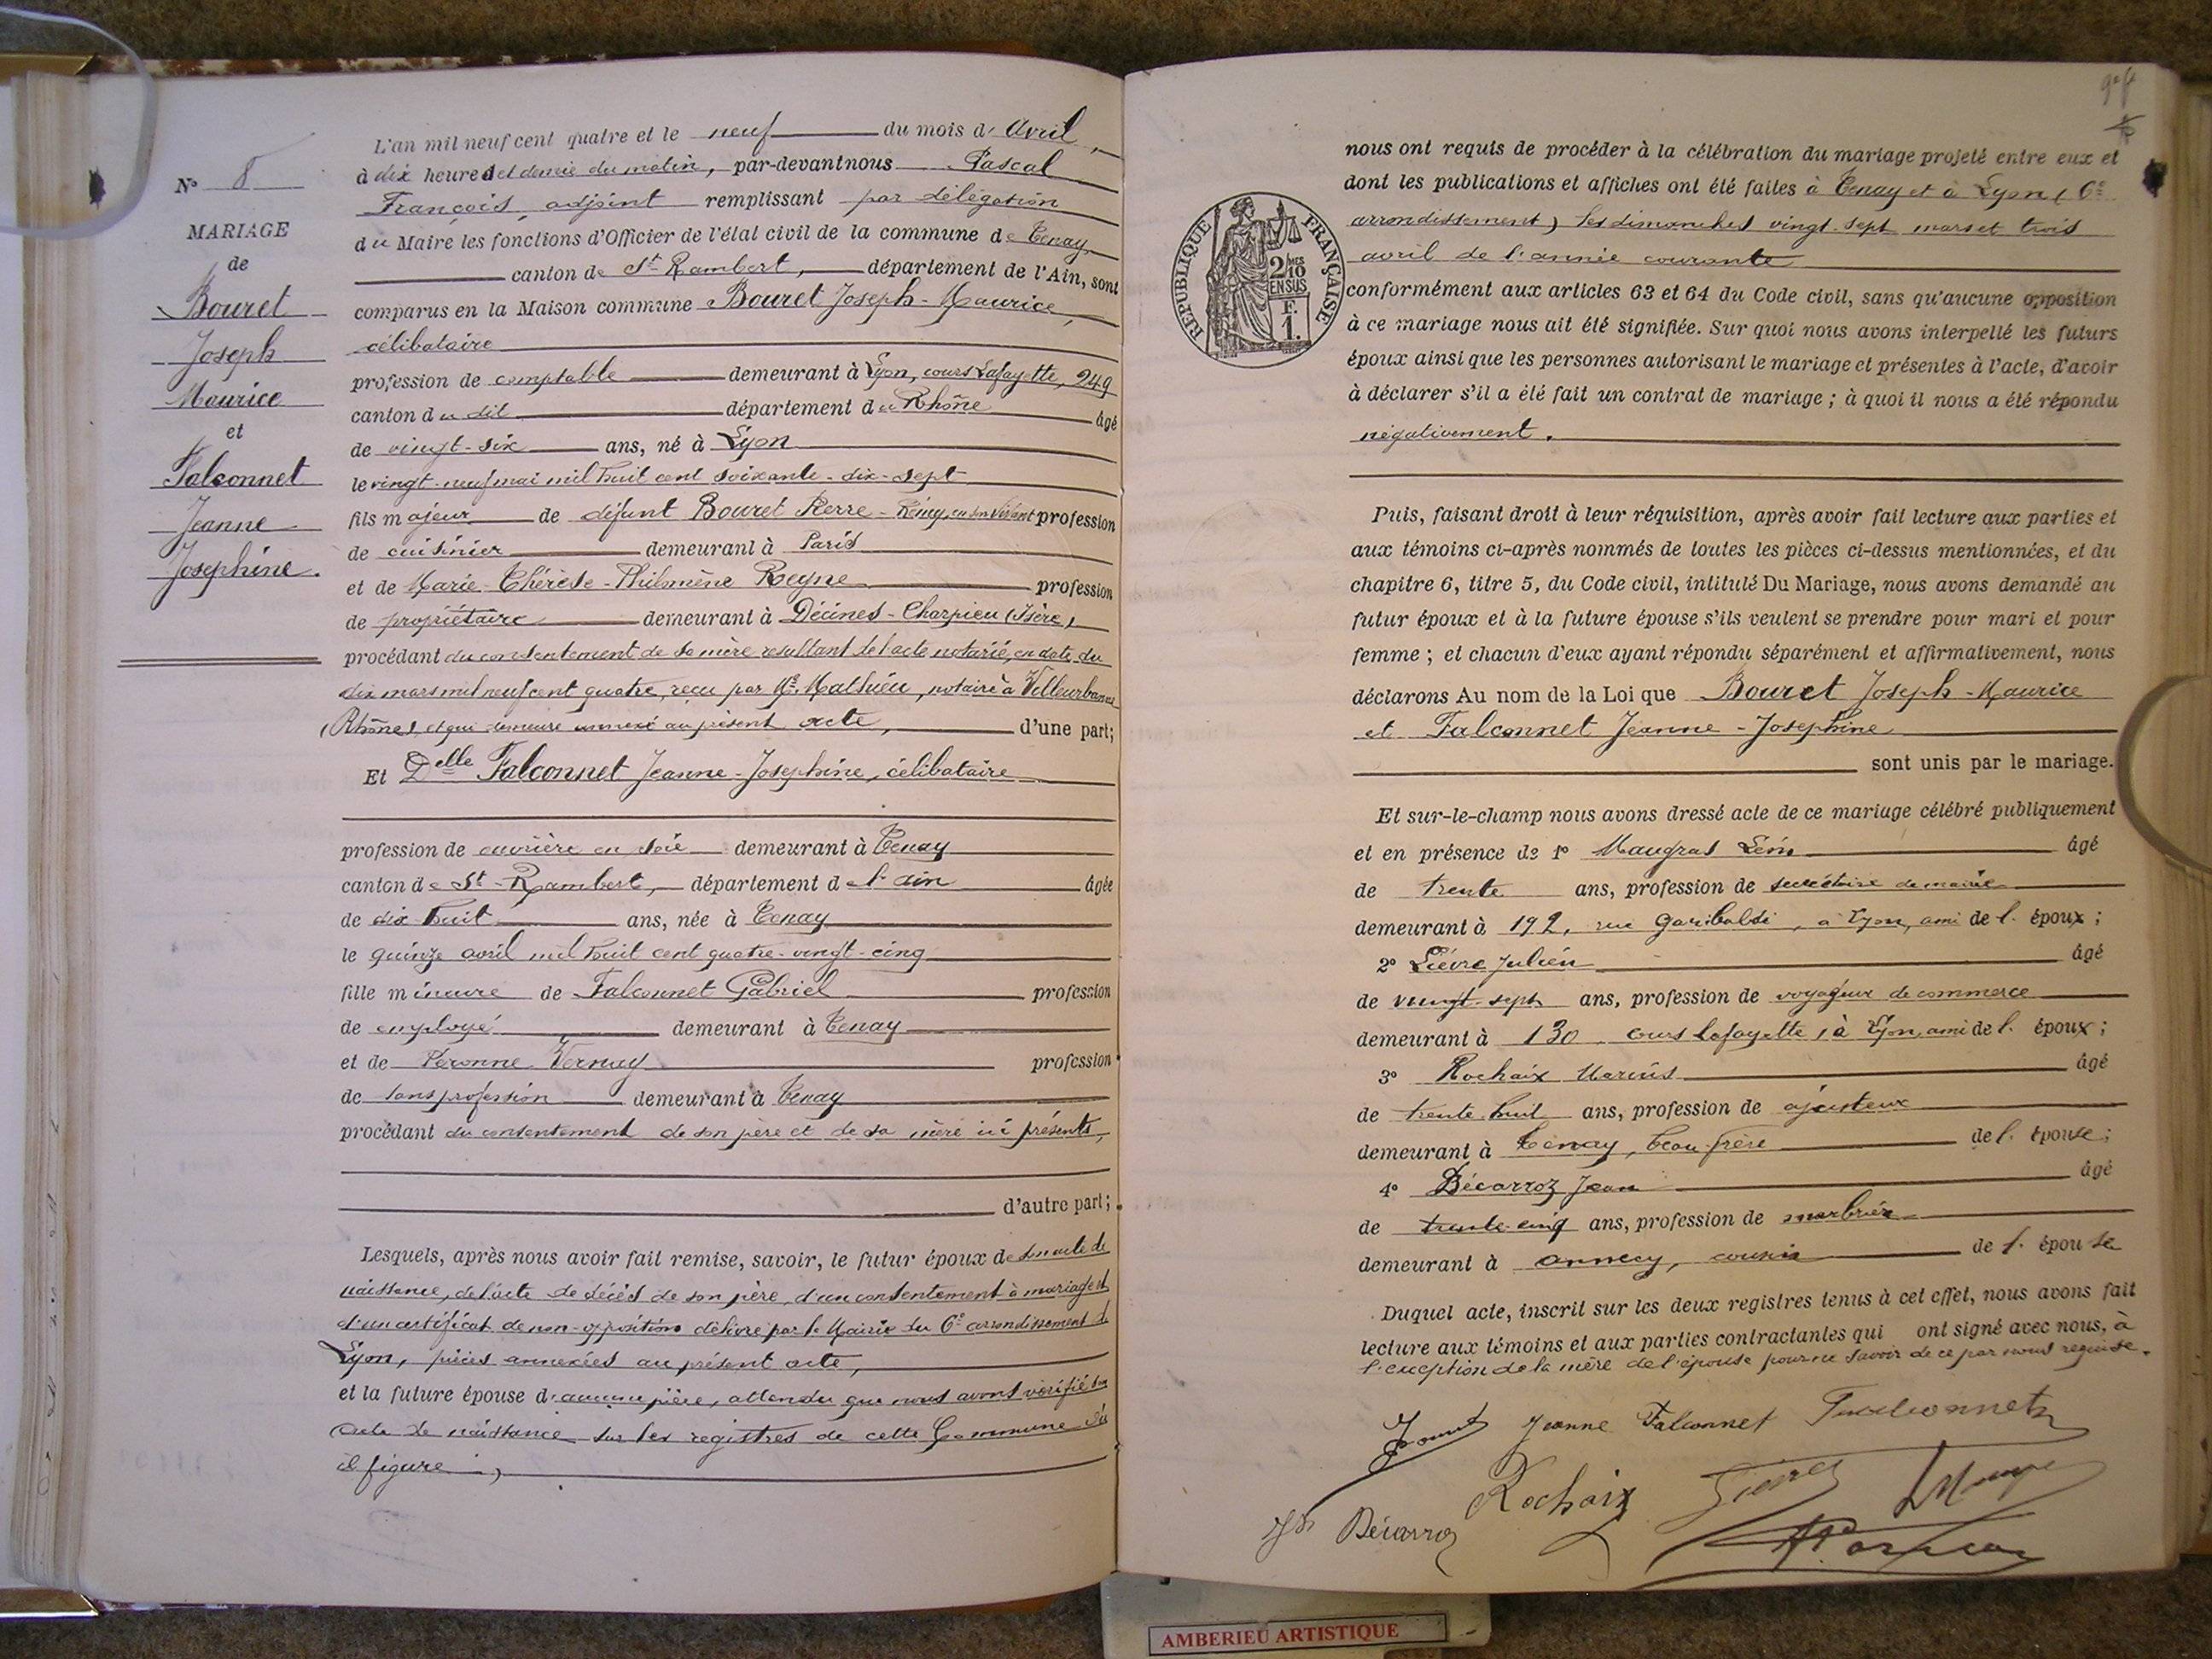 N° 8
MARIAGE
de
Bouret
Joseph
Maurice
et
Falconnet
Jeanne
Josephine.
L'an mil neuf cent quatre et le neuf du mois d' Avril,
à dix heures et demie du matin, par-devant nous Pascal
François, adjoint remplissant par délégation
du Maire les fonctions d'Officier de l'état civil de la commune de Tenay,
canton de St Rambert, département de l'Ain, sont
comparus en la Maison commune Bouret Joseph-Maurice,
célibataire
profession de comptable demeurant à Lyon, cours Lafayette, 249
canton du dit département du Rhône âgé
de vingt-six ans, né à Lyon
le vingt-neuf mai mil huit cent soixante-dix-sept
fils majeur de défunt Bouret Pierre-Rémy, en son vivant profession
de cuisinier demeurant à Paris
et de Marie-Thérèse-Philomène Reyne profession
de propriétaire demeurant à Décines-Charpieu (Isère)
procédant du consentement de sa mère resultant de l'acte notarié, en date du
dix mars mil neuf cent quatre, reçu par Me Mathieu, notaire à Villeurbanne
(Rhône), et qui demeure annexé au présent acte, d'une part;
Et Delle Falconnet Jeanne-Josephine, célibataire
profession de ouvrière en soie demeurant à Tenay
canton de St-Rambert, département de l'ain âgée
de dix-huit ans, née à Tenay
le quinze avril mil huit cent quatre-vingt-cinq
fille mineure de Falconnet Gabriel profession
de employé demeurant à Tenay
et de Péronne Vernay profession
de sans profession demeurant à Tenay
procédant du consentement de son père et de sa mère ici présents,
d'autre part;
Lesquels, après nous avoir fait remise, savoir, le futur époux de son acte de
naissance, de l'acte de décès de son père, d'un consentement à mariage et
d'un certificat de non-opposition délivré par la Mairie du 6e arrondissement de
Lyon, pièces annexées au présent acte,
et la future épouse d'aucune pièce, attendu que nous avons vérifié son
acte de naissance sur les registres de cette Commune où
il figure,
REPUBLIQUE FRANÇAISE
2/10 EN SUS
F. 1.
nous ont requis de procéder à la célébration du mariage projeté entre eux et
dont les publications et affiches ont été faites à Tenay et à Lyon (6e
arrondissement) les dimanches vingt-sept mars et trois
avril de l'année courante
conformément aux articles 63 et 64 du Code civil, sans qu'aucune opposition
à ce mariage nous ait été signifiée. Sur quoi nous avons interpellé les futurs
époux ainsi que les personnes autorisant le mariage et présentes à l'acte, d'avoir
à déclarer s'il a été fait un contrat de mariage ; à quoi il nous a été répondu
négativement.
Puis, faisant droit à leur réquisition, après avoir fait lecture aux parties et
aux témoins ci-après nommés de toutes les pièces ci-dessus mentionnées, et du
chapitre 6, titre 5, du Code civil, intitulé Du Mariage, nous avons demandé au
futur époux et à la future épouse s'ils veulent se prendre pour mari et pour
femme ; et chacun d'eux ayant répondu séparément et affirmativement, nous
déclarons Au nom de la Loi que Bouret Joseph-Maurice
et Falconnet Jeanne-Josephine
sont unis par le mariage.
Et sur-le-champ nous avons dressé acte de ce mariage célébré publiquement
et en présence de 1° Maugras Léon âgé
de trente ans, profession de secrétaire de mairie
demeurant à 192, rue Garibaldi, à Lyon, ami de l' époux ;
2° Lièvre Julien âgé
de vingt-sept ans, profession de voyageur de commerce
demeurant à 130 cours Lafayette, à Lyon, ami de l' époux ;
3° Rochaix Marius âgé
de trente-huit ans, profession de ajusteur
demeurant à Tenay, beau-frère de l' épouse ;
4° Décarroz Jean âgé
de trente-cinq ans, profession de marbrier
demeurant à annecy, cousin de l' épouse
Duquel acte, inscrit sur les deux registres tenus à cet effet, nous avons fait
lecture aux témoins et aux parties contractantes qui ont signé avec nous, à
l'exception de la mère de l'épouse pour ne savoir de ce par nous requise.
Jeanne Falconnet Falconnet
Rochaix Lièvre
Décarroz
AMBERIEU ARTISTIQUE